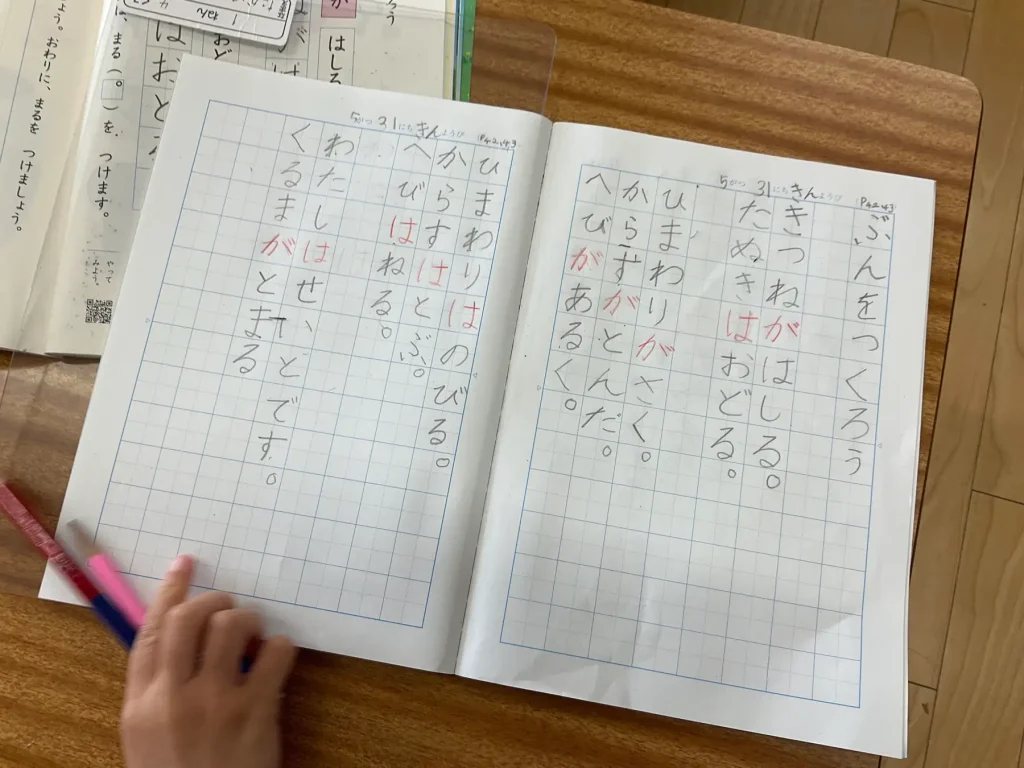 5がつ 31にち きんようび P42.43
ぶんをつくろう
きつねがはしる。
たぬきはおどる。
ひまわりがさく。
からすがとんだ。
へびがあるく。
5がつ 31にち きんようび P42.43
ひまわりはのびる。
からすはとぶ。
へびはねる。
わたしはせいとです。
くるまがとまる
ろう
が
はしる
1ねん
はおど
まる（。）を、つけます。
やって
みよう。
よう。おわりに、まるを つけましょう。